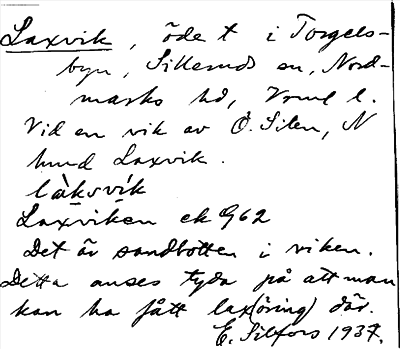 Laxvik, öde t i Torgels-
byn, Sillerud sn, Nord-
marks hd, Vrml l.
Vid en vik av Ö. Silen, N
hmd Laxvik.
làksvík
Laxviken ek 9G2
Det är sandbotten i viken.
Detta anses tyda på att man
kan ha fått lax(öring) där.
E. Silfors 1937.